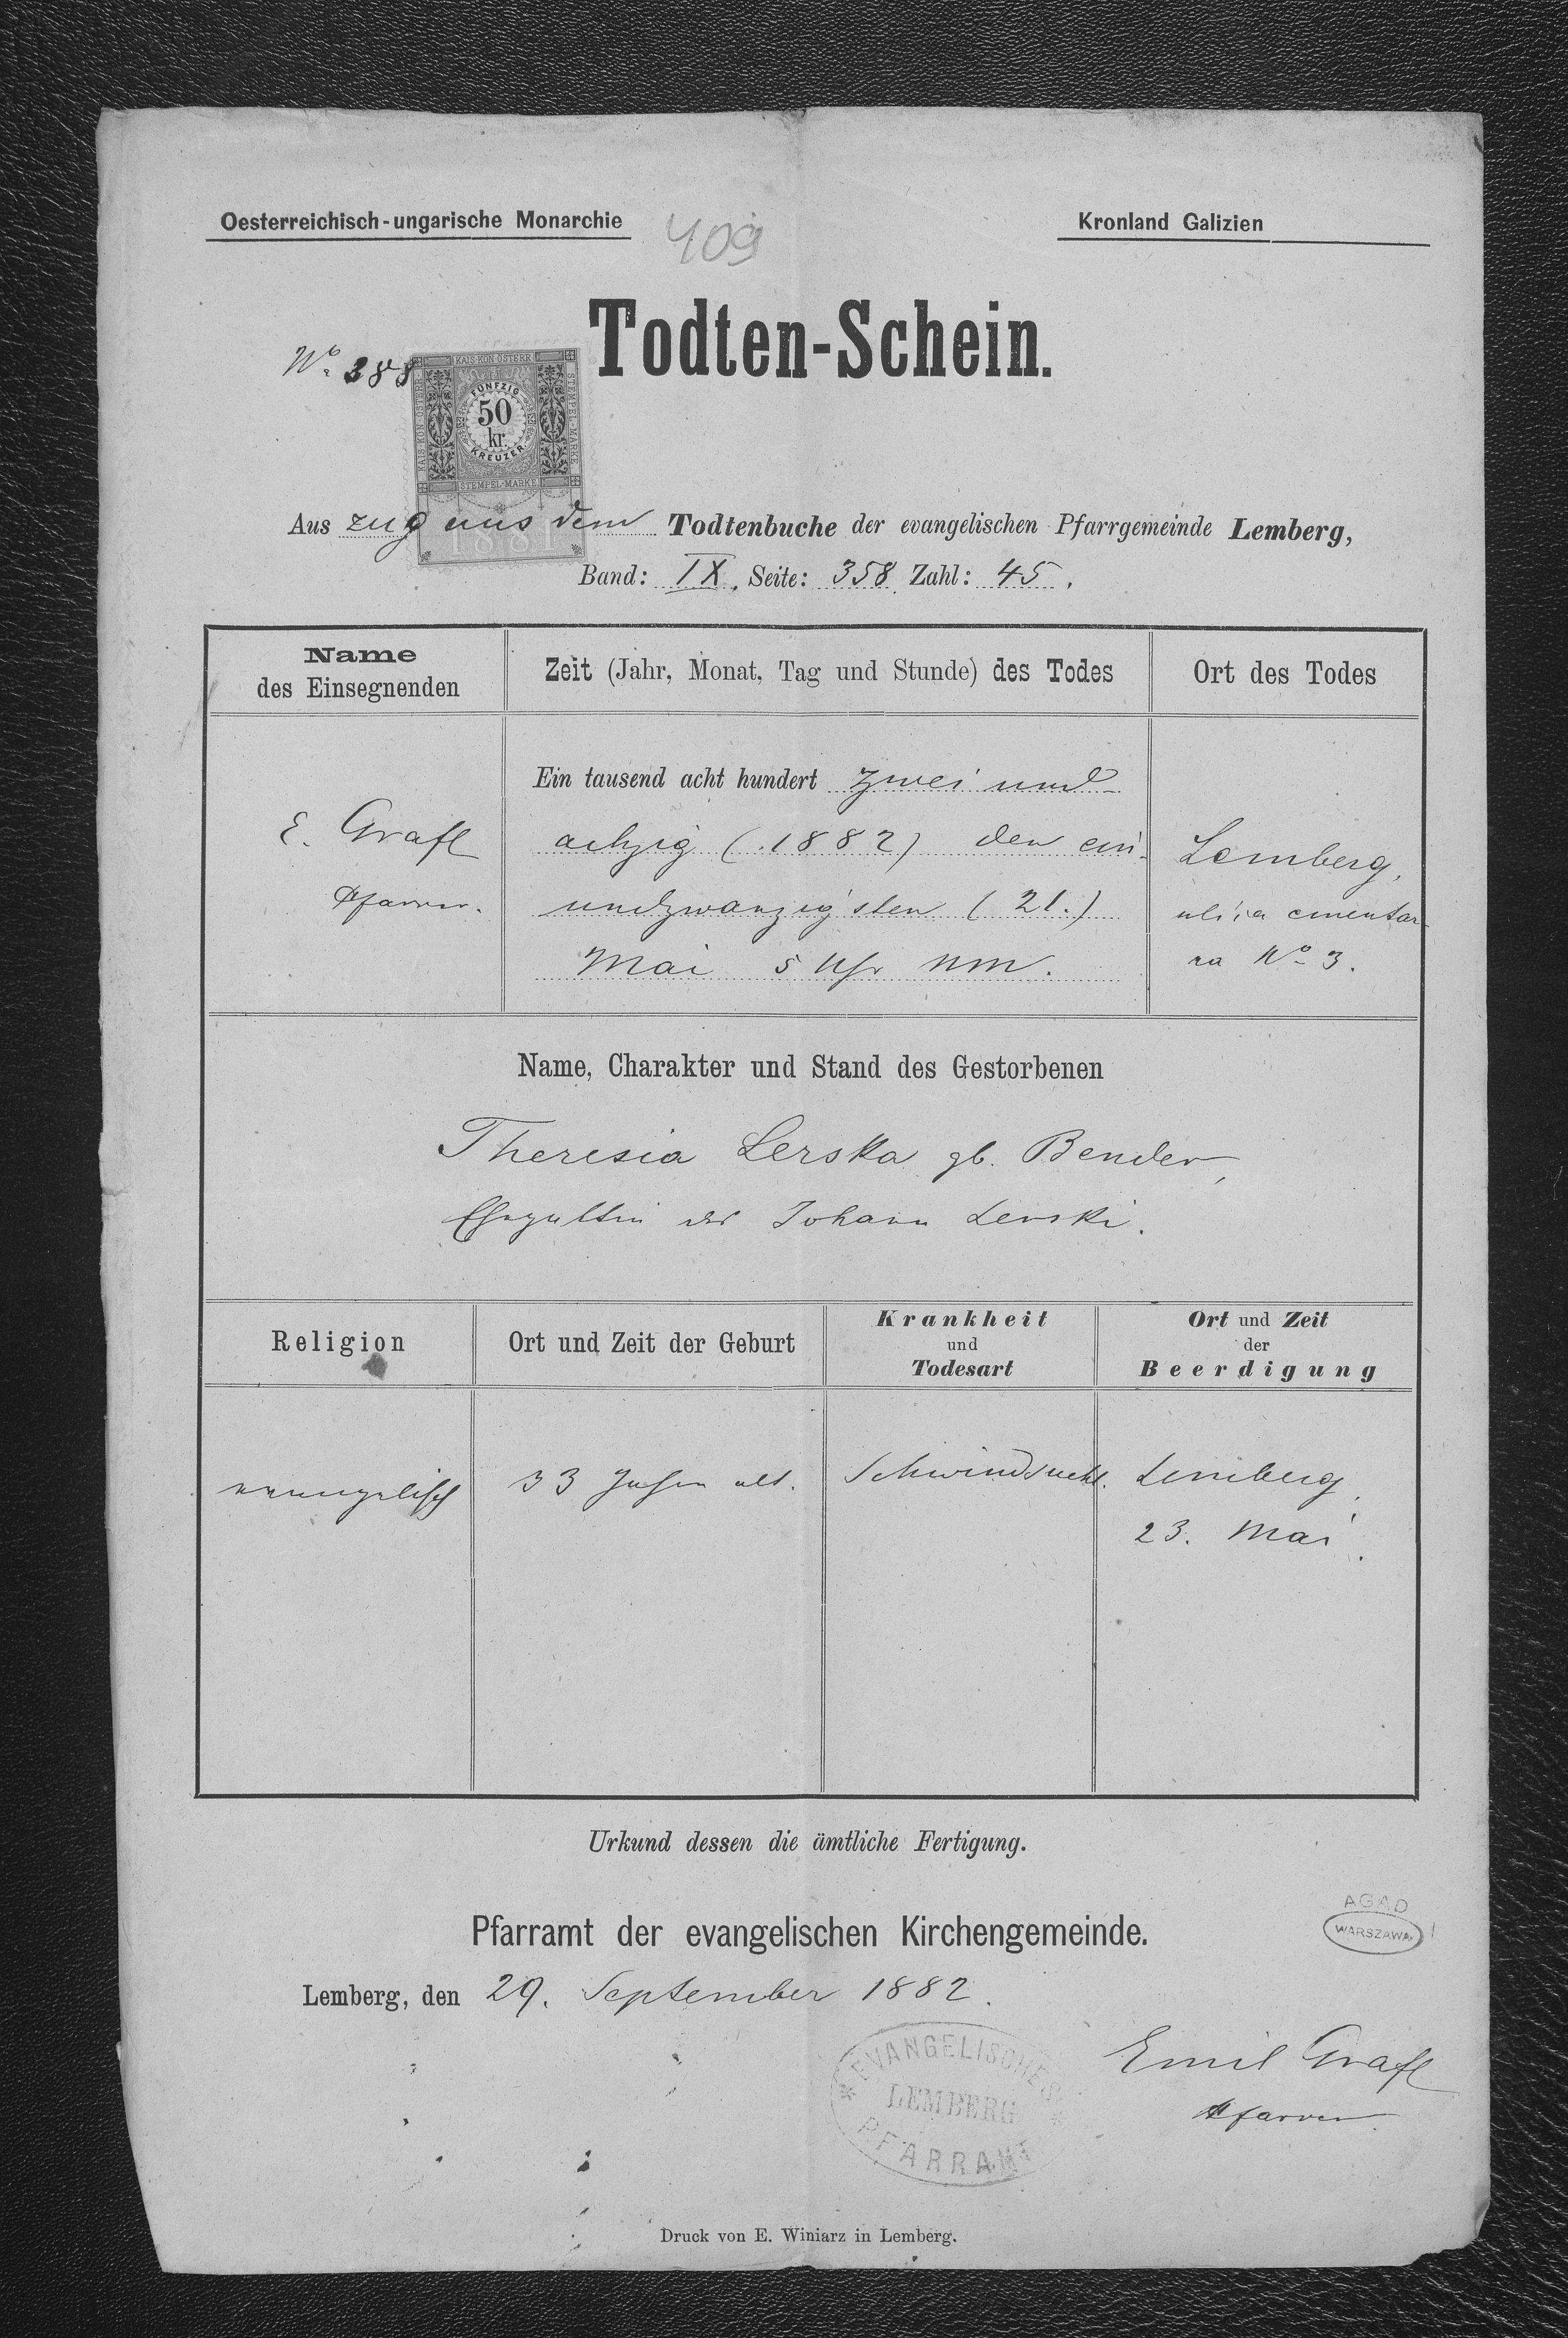 Oesterreichisch-ungarische Monarchie
409
Kronland Galizien
Todten-Schein.
No. 388
KAIS. KÖN. ÖSTERR.
STEMPEL-MARKE
FÜNFZIG
50
kr.
KREUZER
STEMPEL-MARKE
1881
Aus zug aus dem Todtenbuche der evangelischen Pfarrgemeinde Lemberg,
Band: IX. Seite: 358 Zahl: 45.
Name
des Einsegnenden
Zeit (Jahr, Monat, Tag und Stunde) des Todes
Ort des Todes
E. Grafl
Pfarrer.
Ein tausend acht hundert zwei und
achzig (1882) den ein-
undzwanzigsten (21.)
Mai 5 Uhr NM.
Lemberg,
ulica cmentar-
na No 3.
Name, Charakter und Stand des Gestorbenen
Theresia Lerska gb. Bender,
Ehegattin des Johann Lerski.
Religion
Ort und Zeit der Geburt
Krankheit
und
Todesart
Ort und Zeit
der
Beerdigung
evangelisch
33 Jahre alt.
Schwindsucht.
Lemberg,
23. Mai.
Urkund dessen die ämtliche Fertigung.
Pfarramt der evangelischen Kirchengemeinde.
AGAD
WARSZAWA
Lemberg, den 29. September 1882.
EVANGELISCHES
LEMBERG
PFARRAMT
Emil Grafl
Pfarrer.
Druck von E. Winiarz in Lemberg.